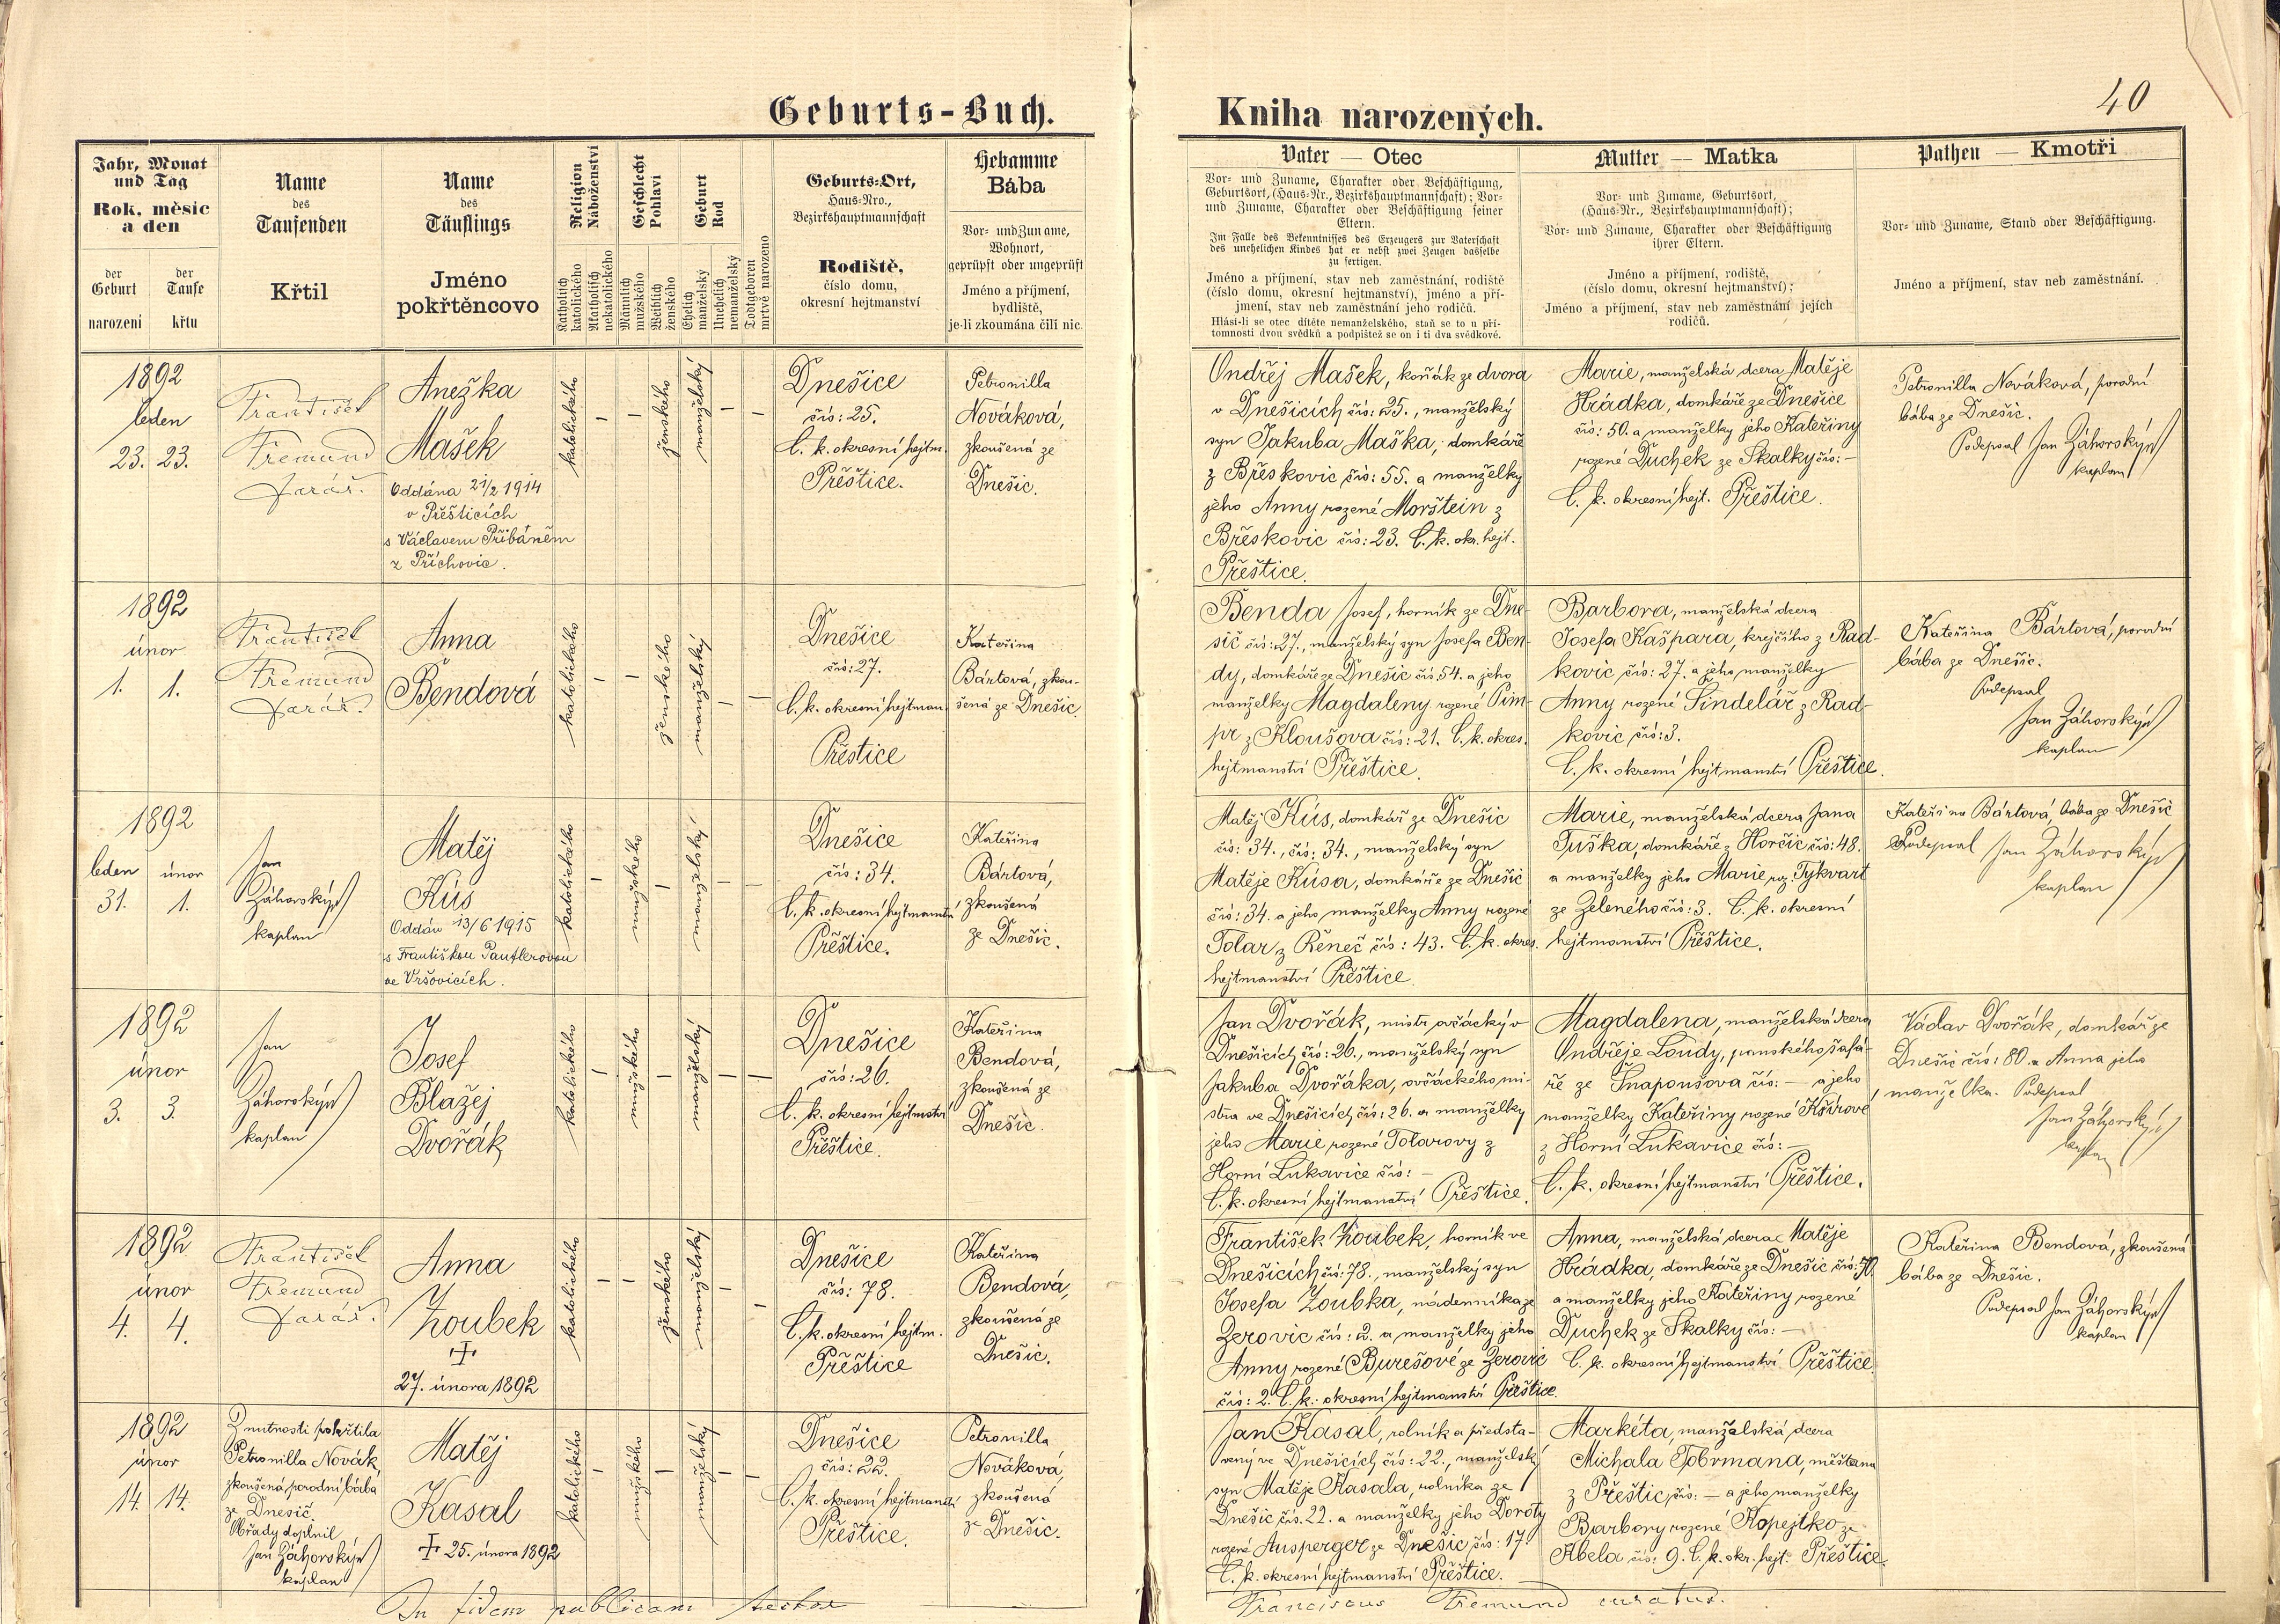 40
Geburts-Buch.
Kniha narozených.
Jahr, Monat
und Tag
Rok, měsíc
a den
der
Geburt
narození
der
Taufe
křtu
Name
des
Taufenden
Křtil
Name
des
Täuflings
Jméno
pokřtěncovo
Religion
Náboženství
Katholisch
katolického
Akatholisch
nekatolického
Geschlecht
Pohlaví
Männlich
mužského
Weiblich
ženského
Geburt
Rod
Ehelich
manželský
Unehelich
nemanželský
Todtgeboren
mrtvě narozeno
Geburts-Ort,
Haus-Nro.,
Bezirkshauptmannschaft
Rodiště,
číslo domu,
okresní hejtmanství
Hebamme
Bába
Vor- und Zuname,
Wohnort,
geprüpft oder ungeprüft
Jméno a příjmení,
bydliště,
je-li zkoumána čili nic.
Vater — Otec
Vor- und Zuname, Charakter oder Beschäftigung,
Geburtsort, (Haus-Nr., Bezirkshauptmannschaft); Vor-
und Zuname, Charakter oder Beschäftigung seiner
Eltern.
Im Falle des Bekenntnisses des Erzeugers zur Vaterschaft
des unehelichen Kindes hat er nebst zwei Zeugen dasselbe
zu fertigen.
Jméno a příjmení, stav neb zaměstnání, rodiště
(číslo domu, okresní hejtmanství), jméno a pří-
jmení, stav neb zaměstnání jeho rodičů.
Hlásí-li se otec dítěte nemanželského, staň se to u pří-
tomnosti dvou svědků a podpištež se on i ti dva svědkové.
Mutter — Matka
Vor- und Zuname, Geburtsort,
(Haus-Nr., Bezirkshauptmannschaft);
Vor- und Zuname, Charakter oder Beschäftigung
ihrer Eltern.
Jméno a příjmení, rodiště,
(číslo domu, okresní hejtmanství);
Jméno a příjmení, stav neb zaměstnání jejích
rodičů.
Pathen — Kmotři
Vor- und Zuname, Stand oder Beschäftigung.
Jméno a příjmení, stav neb zaměstnání.
1892
leden
23. 23.
František
Fremund
farář.
Anežka
Mašek
Oddána 21/2 1914
v Přešticích
s Václavem Přibáněm
z Příchovic.
katolického
ženského
manželský
Dnešice
čís: 25.
C. k. okresní hejtm.
Přeštice.
Petronilla
Nováková,
zkoušená ze
Dnešic.
Ondřej Mašek, koňák ze dvora
v Dnešicích čís: 25., manželský
syn Jakuba Maška, domkáře
z Břeskovic čís: 55. a manželky
jeho Anny rozené Morštein z
Břeskovic čís: 23. C. k. okr. hejt.
Přeštice.
Marie, manželská dcera Matěje
Hrádka, domkáře ze Dnešice
čís: 50. a manželky jeho Kateřiny
rozené Duchek ze Skalky čís: —
C. k. okresní hejt. Přeštice.
Petronilla Nováková, porodní
bába ze Dnešic.
Podepsal Jan Záhorský
kaplan
1892
únor
1. 1.
František
Fremund
farář.
Anna
Bendová
katolického
ženského
manželský
Dnešice
čís: 27.
C. k. okresní hejtman
Přeštice
Kateřina
Bártová, zkou-
šená ze Dnešic.
Benda Josef, horník ze Dne-
šic čís: 27., manželský syn Josefa Ben-
dy, domkáře ze Dnešic čís. 54. a jeho
manželky Magdaleny rozené Pim-
pr z Kloušova čís: 21. C. k. okres.
hejtmanství Přeštice.
Barbora, manželská dcera
Josefa Kašpara, krejčího z Rad-
kovic čís: 27. a jeho manželky
Anny rozené Šindelář z Rad-
kovic čís: 3.
C. k. okresní hejtmanství Přeštice.
Kateřina Bártová, porodní
bába ze Dnešic.
Podepsal
Jan Záhorský
kaplan
1892
leden únor
31. 1.
Jan
Záhorský
kaplan
Matěj
Kůs
Oddán 13/6 1915
s Františkou Pautlerovou
ve Vršovicích.
katolického
mužského
manželský
Dnešice
čís: 34.
C. k. okresní hejtmanství
Přeštice.
Kateřina
Bártová,
zkoušená
ze Dnešic.
Matěj Kůs, domkář ze Dnešic
čís: 34., čís: 34., manželský syn
Matěje Kůsa, domkáře ze Dnešic
čís: 34. a jeho manželky Anny rozené
Tolar z Řeneč čís: 43. C. k. okres.
hejtmanství Přeštice.
Marie, manželská dcera Jana
Tuška, domkáře z Horčic čís: 48.
a manželky jeho Marie roz. Tykvart
ze Zeleného čís: 3. C. k. okresní
hejtmanství Přeštice.
Kateřina Bártová, bába ze Dnešic
Podepsal Jan Záhorský
kaplan
1892
únor
3. 3.
Jan
Záhorský
kaplan
Josef
Blažej
Dvořák
katolického
mužského
manželský
Dnešice
čís: 26.
C. k. okresní hejtmství
Přeštice.
Kateřina
Bendová,
zkoušená ze
Dnešic.
Jan Dvořák, mistr ovčácký v
Dnešicích čís: 26., manželský syn
Jakuba Dvořáka, ovčáckého mi-
stra ve Dnešicích čís: 26. a manželky
jeho Marie rozené Tolarovy z
Horní Lukavice čís: —
C. k. okresní hejtmanství Přeštice.
Magdalena, manželská dcera
Ondřeje Loudy, panského šafá-
ře ze Šnapoušova čís: — a jeho
manželky Kateřiny rozené Kšírové
z Horní Lukavice čís: —
C. k. okresní hejtmanství Přeštice.
Václav Dvořák, domkář ze
Dnešic čís: 80. a Anna jeho
manželka. Podepsal
Jan Záhorský
kaplan
1892
únor
4. 4.
František
Fremund
farář.
Anna
Zoubek
+
27. února 1892
katolického
ženského
manželský
Dnešice
čís: 78.
C. k. okresní hejtm.
Přeštice
Kateřina
Bendová,
zkoušená ze
Dnešic.
František Zoubek, horník ve
Dnešicích čís: 78., manželský syn
Josefa Zoubka, nádenníka ze
Žerovic čís: 2. a manželky jeho
Anny rozené Burešové ze Žerovic
čís: 2. C. k. okresní hejtmanství Přeštice.
Anna, manželská dcera Matěje
Hrádka, domkáře ze Dnešic čís: 50.
a manželky jeho Kateřiny rozené
Duchek ze Skalky čís: —
C. k. okresní hejtmanství Přeštice
Kateřina Bendová, zkoušená
bába ze Dnešic.
Podepsal Jan Záhorský
kaplan
1892
únor
14. 14.
Z nutnosti pokřtila
Petronilla Novák
zkoušená porodní bába
ze Dnešic.
Obřady doplnil
Jan Záhorský
kaplan
Matěj
Kasal
+ 25. února 1892
katolického
mužského
manželský
Dnešice
čís: 22.
C. k. okresní hejtmanství
Přeštice.
Petronilla
Nováková,
zkoušená
ze Dnešic.
Jan Kasal, rolník a předsta-
vený ve Dnešicích čís: 22., manželský
syn Matěje Kasala, rolníka ze
Dnešic čís. 22. a manželky jeho Doroty
rozené Ausperger ze Dnešic čís: 17.
C. k. okresní hejtmanství Přeštice.
Markéta, manželská dcera
Michala Tobrmana, měšťana
z Přeštic čís: — a jeho manželky
Barbory rozené Kopejtko ze
Kbela čís: 9. C. k. okr. hejt. Přeštice.
In fidem publicam
Franciscus Fremund curatus.